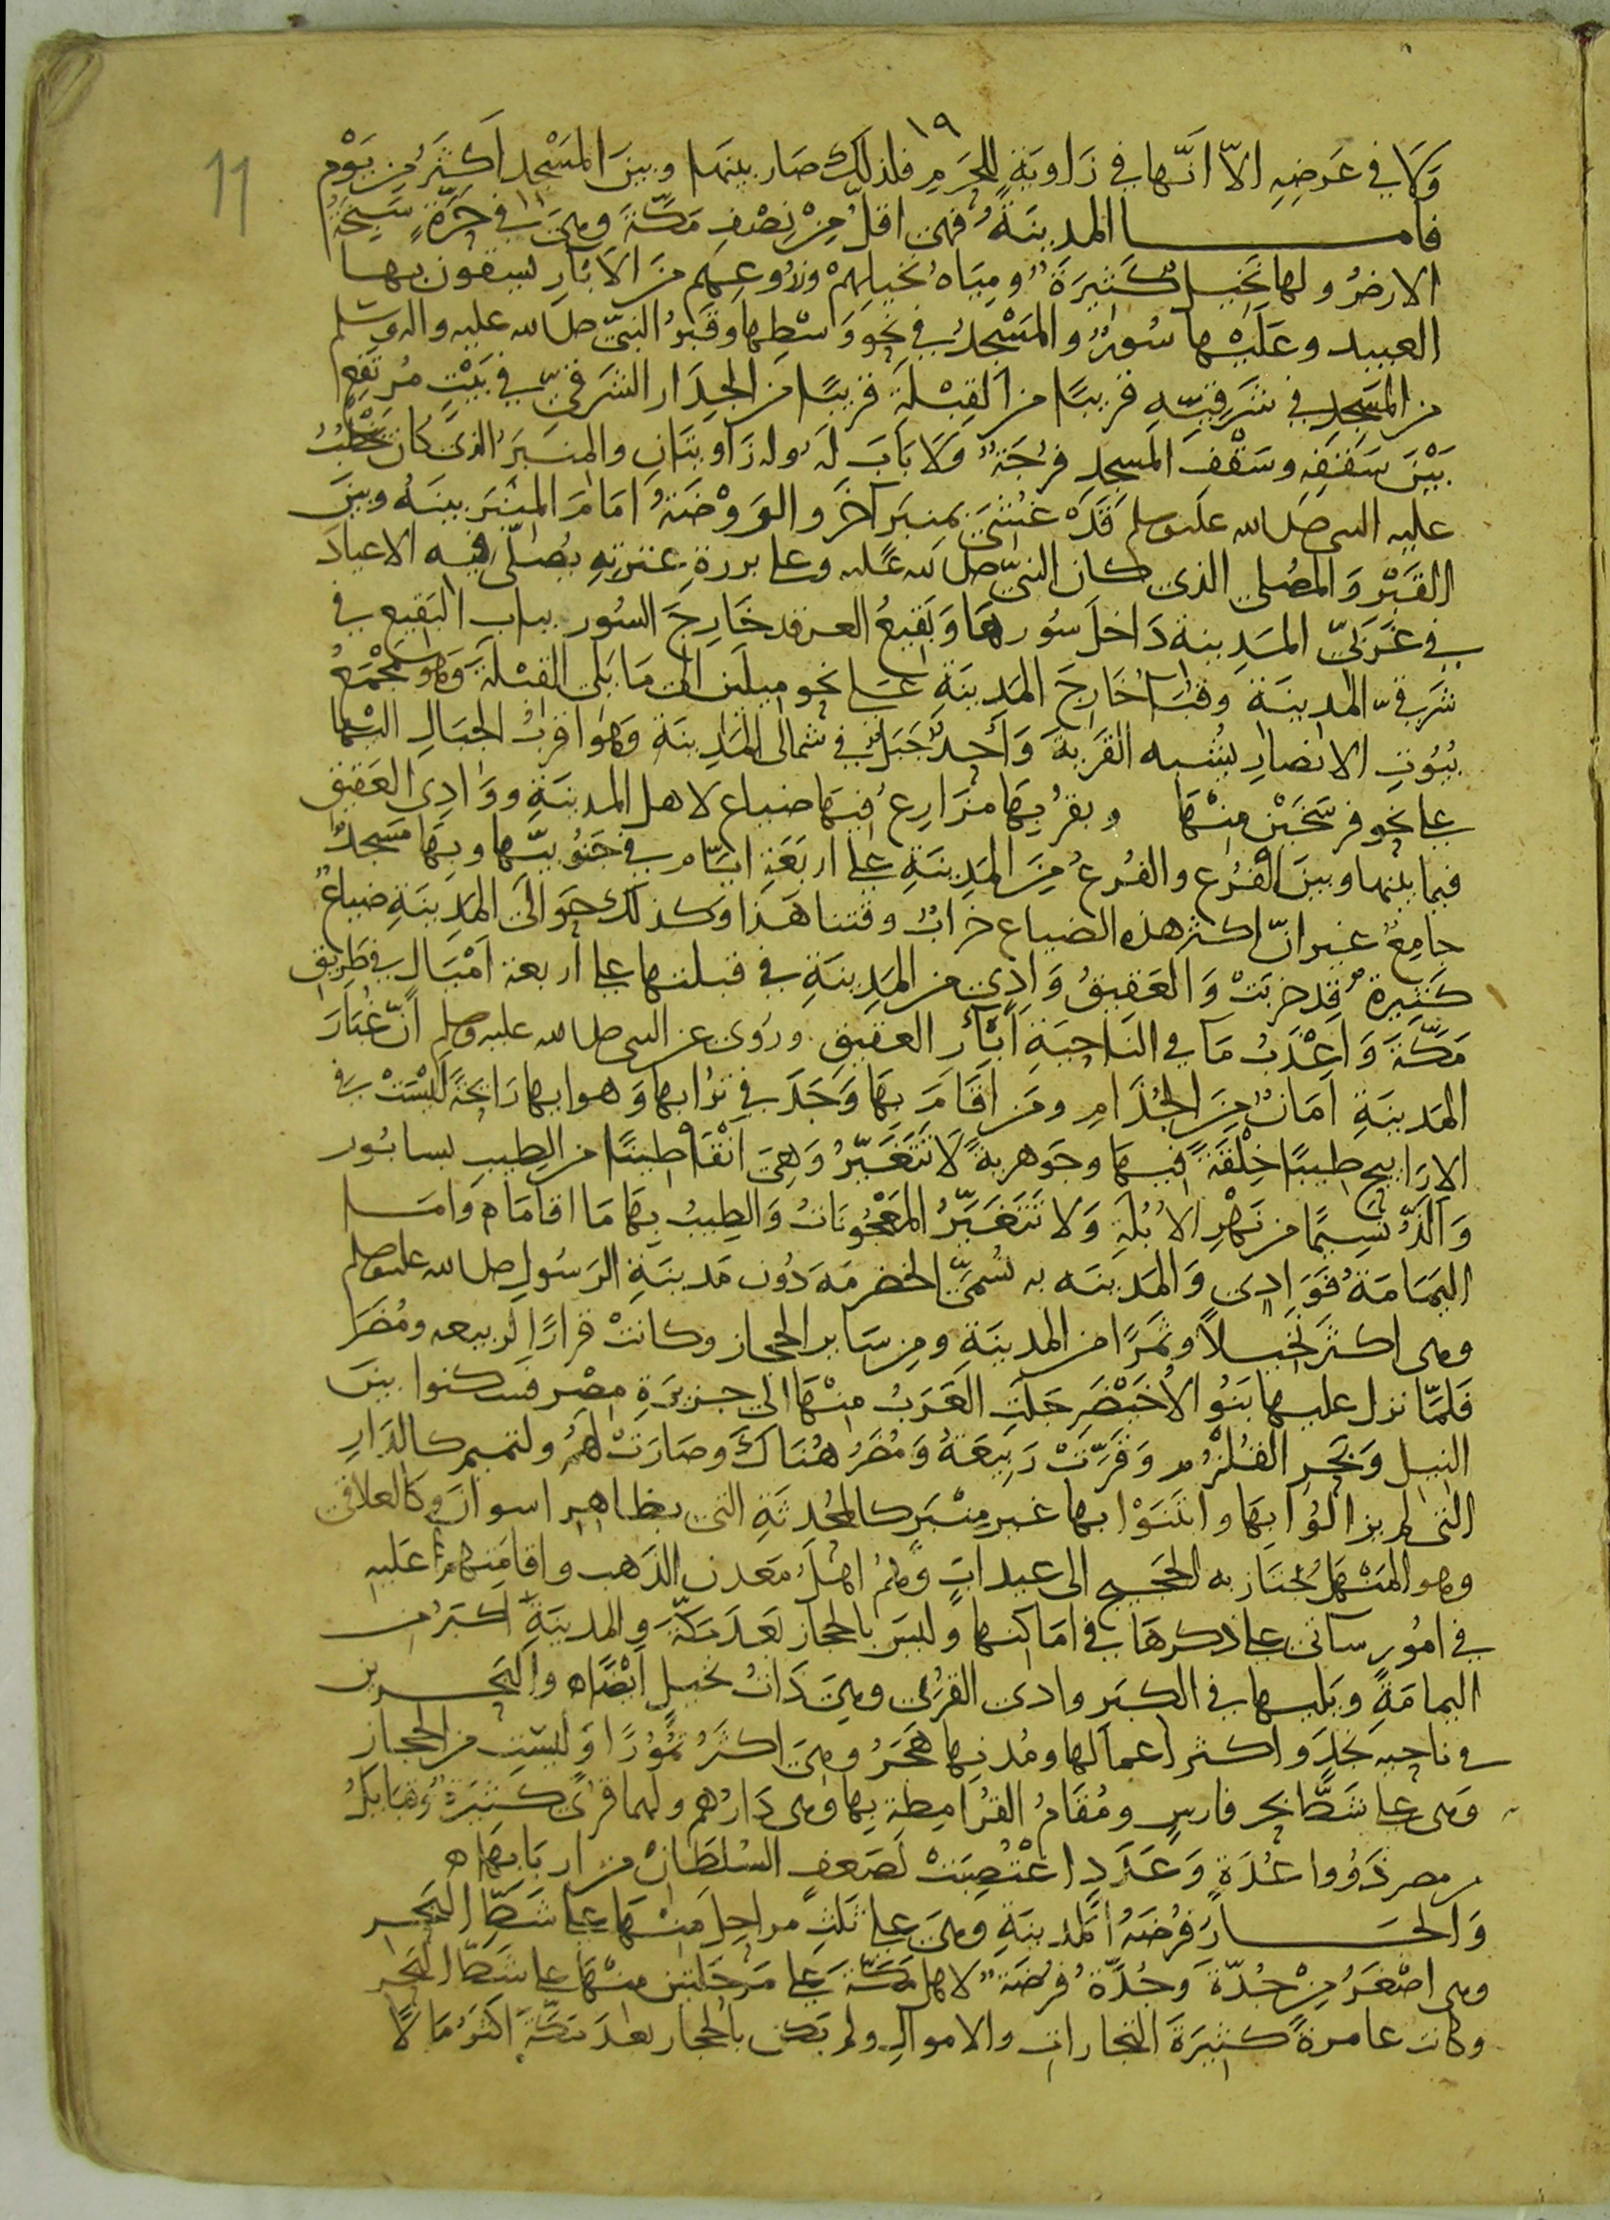 ١٩
11
وَلَا في عَرضِهِ الاّ انّها في زَاويَةٍ للحَرمِ فلذلك صَار بينها وبينَ المَسْجد اَكثَر مِن يَوْم
فامـا المَدينَةُ فهي اقلُ مِنْ نِصْفِ مَكّةَ وهي في حَرّةٍ سَبِخَةُ
الارضُ ولها نخَيـل كثيرَة ومِيَاهُ نخيلِهِمْ وزرُوعِهِم مِنَ الآبَارِ يسقون بها
العبيد وعَلَيْها سُورٌ والمَسْجدُ في نحو وَسْطِها وقَبرُ النبيّ صلى الله عليه واله وسلم
من المَسجِد في شَرقيّه قريبًا من القِبْلَة قريبًا من الجِدَار الشرقيّ في بَيْتٍ مُرتَفِعٍ
بَيْنَ سَقفِهِ وسَقْفِ المَسجِد فُرجَةٌ وَلَا بَابَ لَه وله زَاويتَانِ والمِنبَرُ الذى كان يخطُبُ
عليه النبي صلى الله عليه وسلم قَدْ غُشّيَ بمِنبَرٍ آخرَ والرَوْضَةُ امَامَ المِنْبَرِ بينَه وبينَ
القَبْرِ وَالمُصَلى الذى كان النبيّ صلى الله عليه وعلى بررة عترته يُصَلّى فيه الاعيادَ
في غَربيّ المَدِينة دَاخلَ سُورِهَا وَبَقيعُ الغرقد خَارِجَ السُور بباب البَقيع في
شَرقيّ المَدينَة وقُبَا خَارجَ المَدِينَةِ عَلى نحو ميلَين الى مَا يَلى القِبْلَةَ وَهو مَجْمَعُ
بُيُوتِ الانصَارِ يُشْبه القَريَةَ وَأُحدٌ جَبَلٌ في شمالى المَدِينَة وَهو اقربُ الجبَالِ اليها
على نحو فرسَخَيْن مِنْهَا وبقرُبِهَا مَزَارِع فيهَا ضياع لاهل المدينَةِ ووَادى العَقيق
فيما بينها وبينَ الفُرُع والفُرعُ مِنَ المَدِينَةِ على اربَعَةِ ايّام في جَنُوبيّها وبِهَا مَسجِدٌ
جامِعٌ غير انّ اكثر هذه الضياع خرابٌ وقتنا هَذا وكذلك حَوالَى المَدِينَةِ ضياعٌ
كثيرةٌ قد خربَتْ وَالعَقيقُ وَادٍ من المَدِينَةِ في قبلتها على أربعة اَمْيَال في طَرِيق
مَكّةَ وَاعْذَبُ مَا في النَاحِيَةِ آبَارُ العَقيق ورُوى عن النبى صلى الله عليه وسلم انّ غُبَارَ
المَدينَةِ اَمَانٌ مِنَ الجُذَامِ ومَن اَقَامَ بِهَا وَجَدَ في تُرابها وَهوائها رَائحَةً لَيْسَتْ في
الارَاييح طيبًا خِلْقَةً فيهَا وجَوهرية لا تَتَغَيّرُ وَهيَ انْقَا طيبًا من الطيبِ بسابُور
وَالَذّ نَسِيمًا من نَهْرِ الاُبُلةِ وَلا تَتَغَيّرُ المَعْجُونَاتُ وَالطِيبُ بِهَا مَا اقامَا م وَامَـا
اليَمَامَةُ فَوَادى وَالمَدينَه به تُسمّى الخضرمَه دُون مَدينَةِ الرَسُولِ صلى الله عليه وسلم
وهى اكثر نَخيلاً وتَمرًا من المدينَةِ ومِن سَاير الحجاز وكانتْ قرارًا لربيعه ومُضَرَ
فَلَمّا نزل عليها بَنُو الاُخَيْضَرِ جَلتِ العَرَبُ مِنْهَا الى جزيرَةِ مِصْر فسكنوا بينَ
النيل وَبَحر القُلزُم وَقرّتْ رَبيعَةُ وَمُضَرُ هُنَاكَ وصَارَتْ لهمُ ولتميم كالدَارِ
التى لم يزالوُا بِهَا وابتَنَوْا بها غير مِنْبَر كالمُحدَثَةِ التى بظاهِر اسوان وكالعلاقى
وهو المَنْهَلُ يُجتاز به الحَجيج الى عيذاب وَهُمْ اهْلُ مَعدن الذَهب واقامتُهم عَليه
في امُورٍ سآتى على ذكرهَا في امَاكنها وليسَ بالحجاز بَعدَ مَكّةَ والمدينَةِ اكبَر من
اليمامَةِ ويَليها في الكبَر وادى القُرَى وهى ذَاتُ نخيلٍ ايْضًا ه والبَحـرين
في ناحيه نَجد واكثر اعمالها ومُدنِها هَجَرُ وهى اكثَرُ تُمُورًا وَليسَت من الحجاز
وَهى على شَطّ بحر فارس ومُقَامُ القُرامِطةِ بها وهى دَارُهم ولهما قرًى كثيرَةٌ وقبَايلُ
من مضر ذَوُوا عُدَةٍ وَعَدَدٍ اغْتُصِبَتْ لضَعفِ السُلطَانْ من اربَابِهَا ه
وَالجَـار فُرضَةُ المَدينَةِ وهى على ثلثِ مراحِلَ مِنْهَا على شَطّ البَحـر
وهى اصْغَرُ مِنْ جُدّةَ وَجُدّة فُرضَةٌ لاهل مَكّةَ على مَرحَلتين منْهَا على شَطّ البَحر
وكانت عامرةً كثيرَةَ التجاراتِ والاموالِ ولم يَكن بالحجاز بعدَ مَكّةَ اكثرُ مَالاً